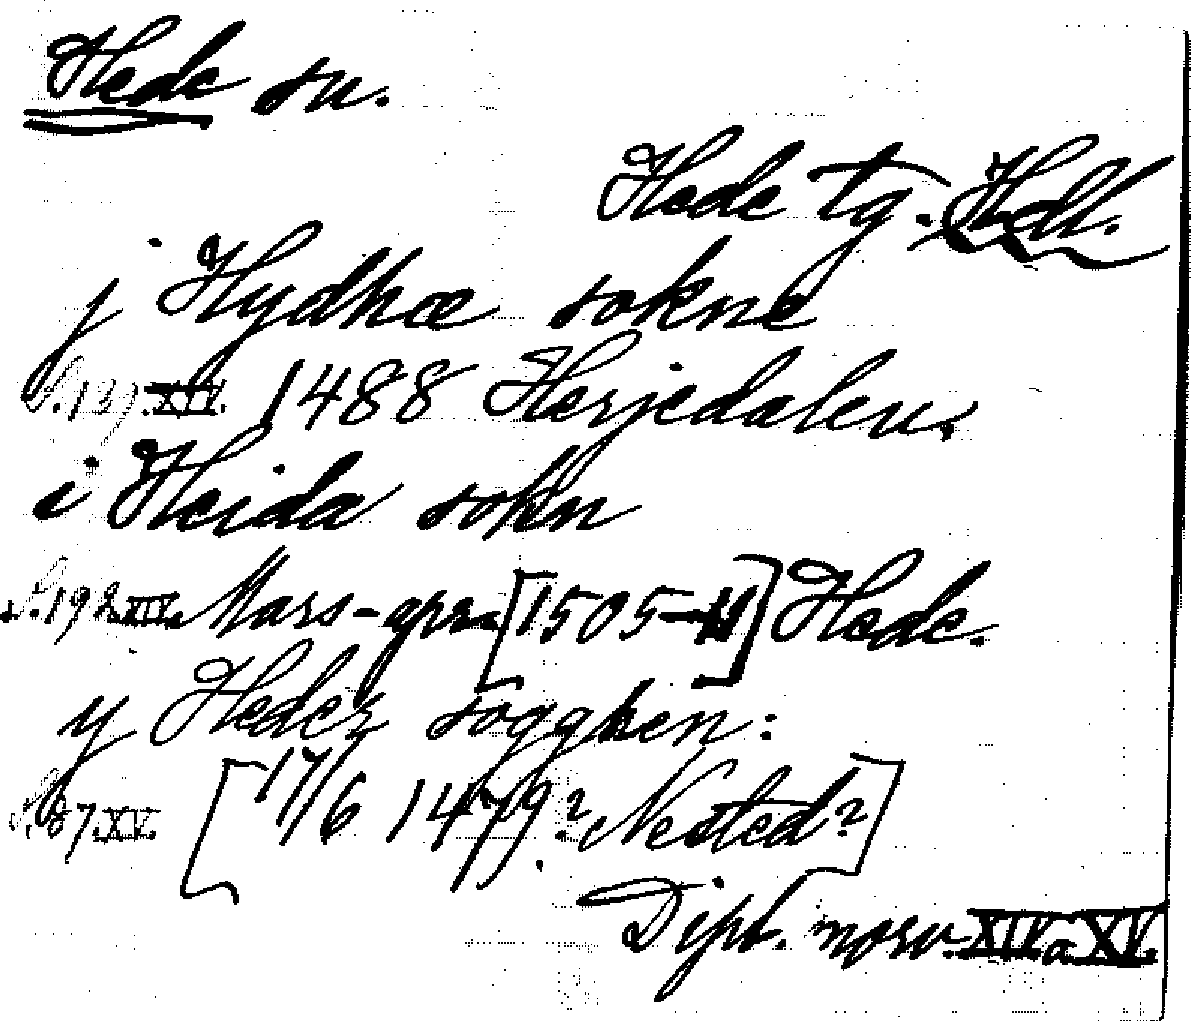 Hede sn.
Hede tg. Hdl.
j Hydhæ sokne
S.137.XIV. 1488 Herjedalen.
i Heida sokn
S.198.XIV. Mars-apr. [1505-11] Hede.
y Hedez sogghen:
S.87.XV. [17/6 1479? Nested?]
Dipl. norv. XIV a XV.